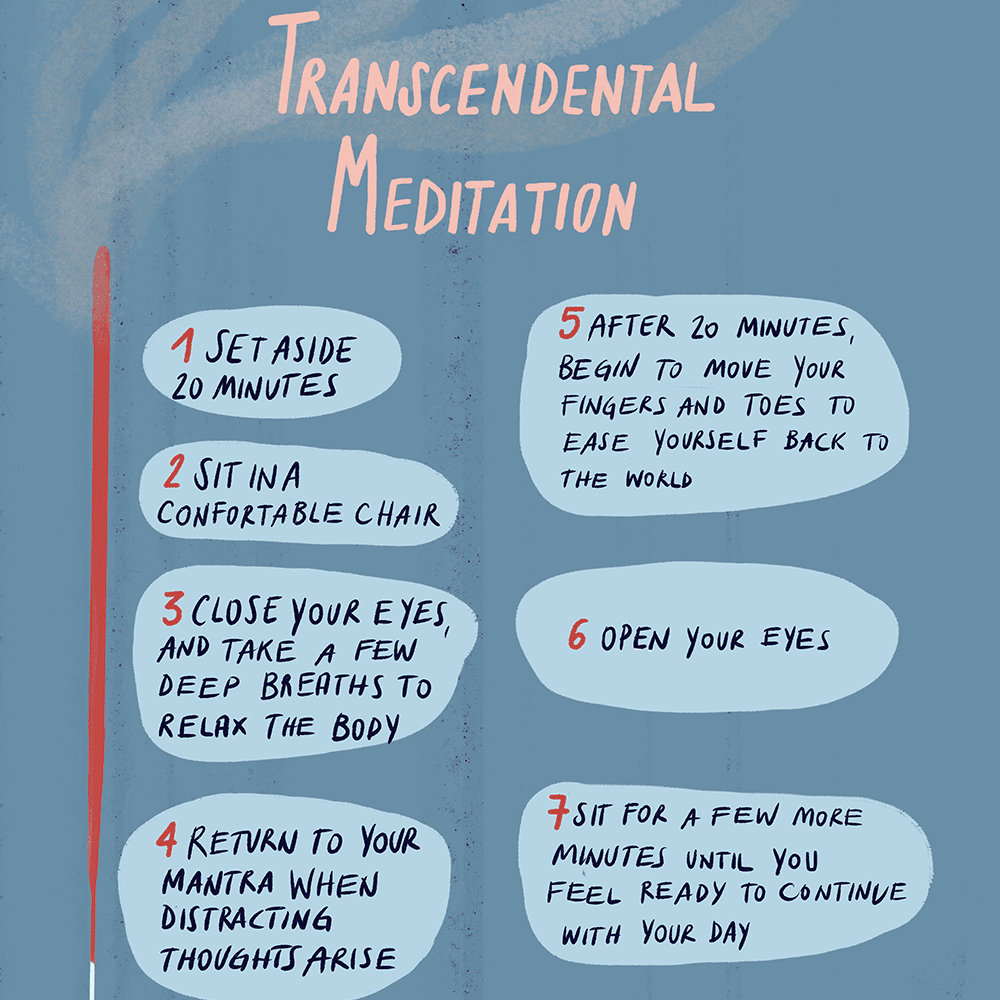 TRANSCENDENTAL
MEDITATION
1 SET ASIDE
20 MINUTES
2 SIT IN A
CONFORTABLE CHAIR
3 CLOSE YOUR EYES,
AND TAKE A FEW
DEEP BREATHS TO
RELAX THE BODY
4 RETURN TO YOUR
MANTRA WHEN
DISTRACTING
THOUGHTS ARISE
5 AFTER 20 MINUTES,
BEGIN TO MOVE YOUR
FINGERS AND TOES TO
EASE YOURSELF BACK TO
THE WORLD
6 OPEN YOUR EYES
7 SIT FOR A FEW MORE
MINUTES UNTIL YOU
FEEL READY TO CONTINUE
WITH YOUR DAY